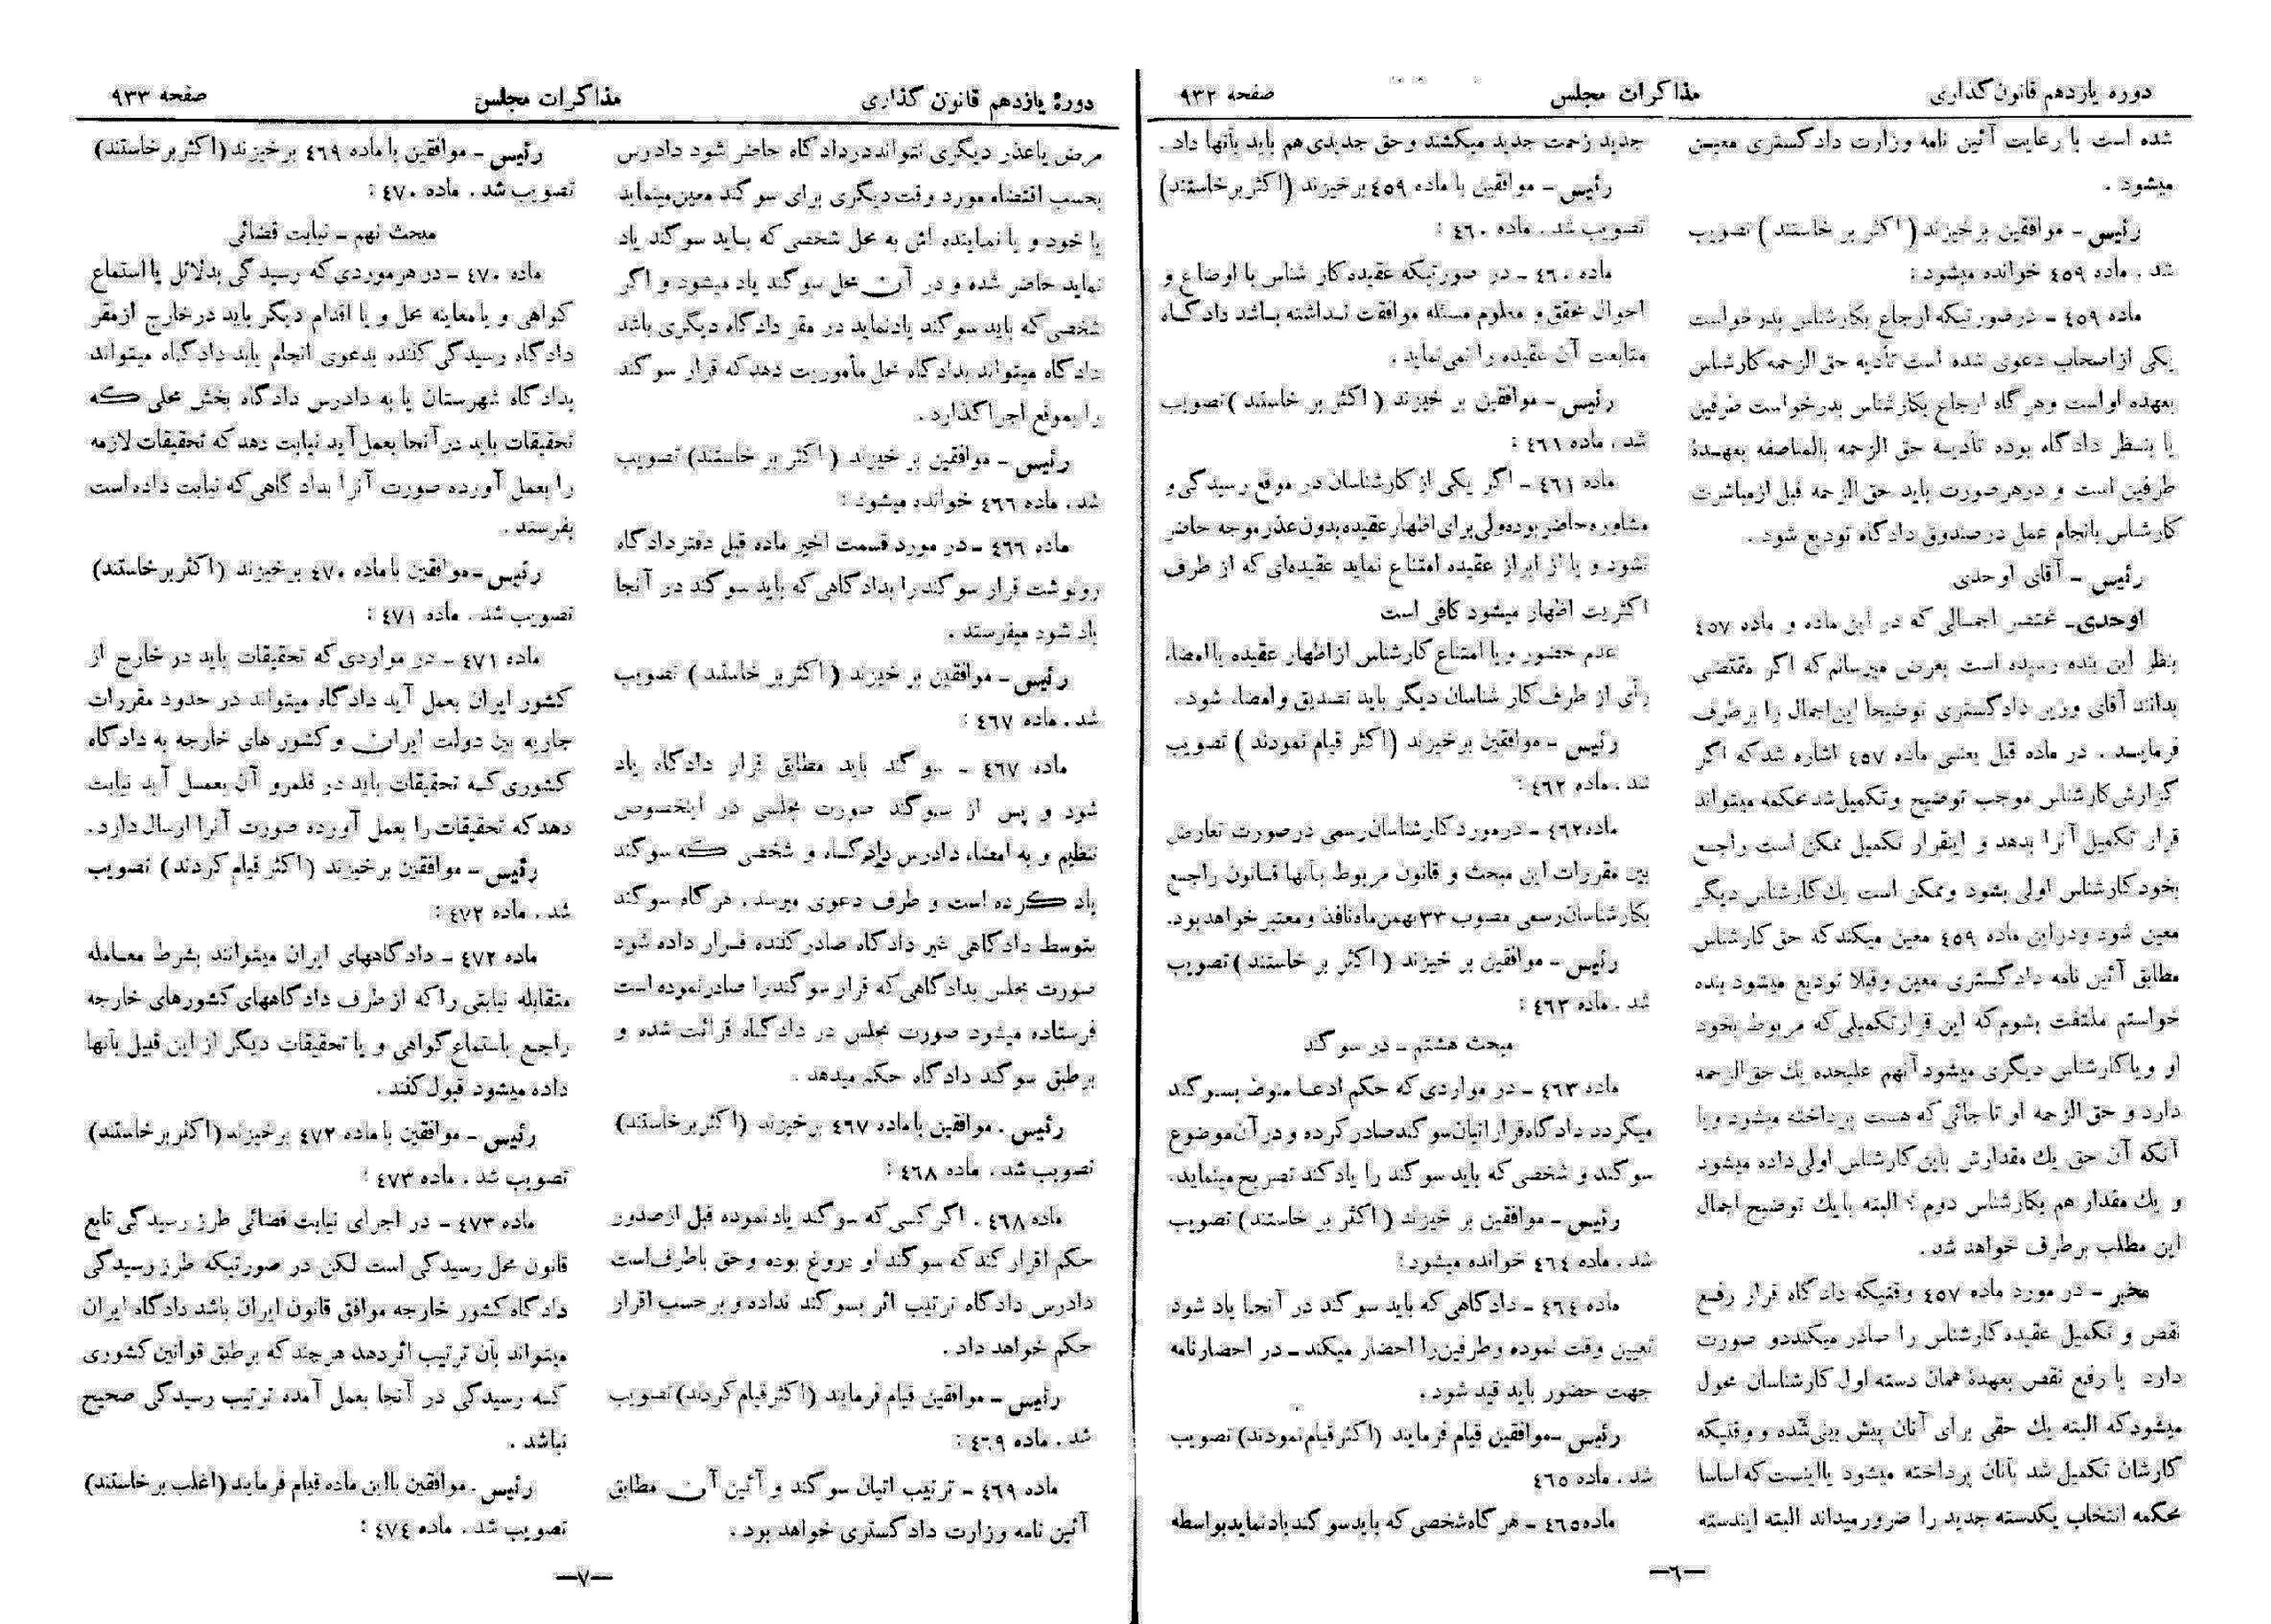 دوره یازدهم قانون‌گذاری
مذاکرات مجلس
صفحه ۹۳۲
شده است با رعایت آئین نامه وزارت دادگستری معین
میشود .
رئیس - موافقین برخیزند (اکثر بر خاستند) تصویب
شد . ماده ٤٥٩ خوانده میشود :
ماده ٤٥٩ - درصورتیکه ارجاع بکارشناس بدرخواست
یکی از اصحاب دعوی شده است تأدیه حق الزحمه کارشناس
بعهده او است وهرگاه ارجاع بکارشناس بدرخواست طرفین
یا بنظر دادگاه بوده تأدیه حق الزحمه بالمناصفه بعهدهٔ
طرفین است و درهرصورت باید حق الزحمه قبل ازمباشرت
کارشناس بانجام عمل درصندوق دادگاه تودیع شود .
رئیس - آقای اوحدی
اوحدی - مختصر اجمالی که در این ماده و ماده ٤٥٧
بنظر این بنده رسیده است بعرض میرسانم که اگر مقتضی
بدانند آقای وزیر دادگستری توضیحاً این اجمال را برطرف
فرمایند . در ماده قبل یعنی ماده ٤٥٧ اشاره شد که اگر
گزارش کارشناس موجب توضیح و تکمیل شد محکمه میتواند
قرار تکمیل آنرا بدهد و اینقرار تکمیل ممکن است راجع
بخود کارشناس اولی بشود وممکن است یك کارشناس دیگر
معین شود ودراین ماده ٤٥٩ معین میکند که حق کارشناس
مطابق آئین نامه دادگستری معین وقبلا تودیع میشود بنده
خواستم ملتفت بشوم که این قرار تکمیلی که مربوط بخود
او ویا کارشناس دیگری میشود آنهم علیحده یك حق الزحمه
دارد و حق الزحمه او تا جائی که هست پرداخته میشود ویا
آنکه آن حق یك مقدارش باین کارشناس اولی داده میشود
و یك مقدار هم بکارشناس دوم ؟ البته با یك توضیح اجمال
این مطلب برطرف خواهد شد .
مخبر - در مورد ماده ٤٥٧ وقتیکه دادگاه قرار رفع
نقص و تکمیل عقیده کارشناس را صادر میکند دو صورت
دارد یا رفع نقص بعهدهٔ همان دسته اول کارشناسان محول
میشود که البته یك حقی برای آنان پیش بینی شده و وقتیکه
کارشان تکمیل شد بآنان پرداخته میشود یا اینست که اساسا
محکمه انتخاب یکدسته جدید را ضرور میداند البته ایندسته
جدید زحمت جدید میکشند وحق جدیدی هم باید بآنها داد .
رئیس - موافقین با ماده ٤٥٩ برخیزند (اکثر برخاستند)
تصویب شد . ماده ٤٦٠ :
ماده ٤٦٠ - در صورتیکه عقیده کار شناس با اوضاع و
احوال محقق و معلوم مسئله موافقت نداشته باشد دادگاه
متابعت آن عقیده را نمی نماید .
رئیس - موافقین بر خیزند ( اکثر بر خاستند ) تصویب
شد . ماده ٤٦١ :
ماده ٤٦١ - اگر یکی از کارشناسان در موقع رسیدگی و
مشاوره حاضر بوده ولی برای اظهار عقیده بدون عذر موجه حاضر
نشود و یا از ابراز عقیده امتناع نماید عقیده‌ای که از طرف
اکثریت اظهار میشود کافی است
عدم حضور و یا امتناع کارشناس از اظهار عقیده یا امضاء
رأی از طرف کار شناسان دیگر باید تصدیق و امضاء شود .
رئیس - موافقین برخیزند (اکثر قیام نمودند ) تصویب
شد . ماده ٤٦٢ :
ماده ٤٦٢ - درمورد کارشناسان رسمی درصورت تعارض
بین مقررات این مبحث و قانون مربوط بآنها قانون راجع
بکارشناسان رسمی مصوب ۲۳ بهمن ماه نافذ و معتبر خواهد بود.
رئیس - موافقین بر خیزند ( اکثر بر خاستند ) تصویب
شد . ماده ٤٦٣ :
مبحث هشتم - در سوگند
ماده ٤٦٣ - در مواردی که حکم ادعا منوط بسوگند
میگردد دادگاه قرار اتیان سوگند صادر کرده و در آن موضوع
سوگند و شخصی که باید سوگند را یاد کند تصریح مینماید.
رئیس - موافقین بر خیزند ( اکثر بر خاستند) تصویب
شد . ماده ٤٦٤ خوانده میشود :
ماده ٤٦٤ - دادگاهی که باید سوگند در آنجا یاد شود
تعیین وقت نموده و طرفین را احضار میکند - در احضارنامه
جهت حضور باید قید شود .
رئیس - موافقین قیام فرمایند (اکثر قیام نمودند) تصویب
شد . ماده ٤٦٥
ماده ٤٦٥ - هرگاه شخصی که باید سوگند یاد نماید بواسطه
—٦—
دورهٔ یازدهم قانون گذاری
مذاکرات مجلس
صفحه ۹۳۳
مرض یا عذر دیگری نتواند در دادگاه حاضر شود دادرس
بحسب اقتضاء مورد وقت دیگری برای سوگند معین مینماید
یا خود و یا نماینده اش به محل شخصی که باید سوگند یاد
نماید حاضر شده و در آن محل سوگند یاد میشود و اگر
شخصی که باید سوگند یادنماید در مقر دادگاه دیگری باشد
دادگاه میتواند بدادگاه محل مأموریت دهد که قرار سوگند
را بموقع اجرا گذارد .
رئیس - موافقین بر خیزند ( اکثر بر خاستند) تصویب
شد . ماده ٤٦٦ خوانده میشود :
ماده ٤٦٦ - در مورد قسمت اخیر ماده قبل دفتر دادگاه
رونوشت قرار سوگند را بدادگاهی که باید سوگند در آنجا
یاد شود میفرستد .
رئیس - موافقین بر خیزند ( اکثر بر خاستند ) تصویب
شد . ماده ٤٦٧ :
ماده ٤٦٧ - سوگند باید مطابق قرار دادگاه یاد
شود و پس از سوگند صورت مجلسی در اینخصوص
تنظیم و به امضاء دادرس دادگاه و شخصی که سوگند
یاد کرده است و طرف دعوی میرسد . هرگاه سوگند
بتوسط دادگاهی غیر دادگاه صادر کننده قرار داده شود
صورت مجلس بدادگاهی که قرار سوگند را صادر نموده است
فرستاده میشود صورت مجلس در دادگاه قرائت شده و
برطبق سوگند دادگاه حکم میدهد .
رئیس . موافقین با ماده ٤٦٧ برخیزند (اکثر برخاستند)
تصویب شد . ماده ٤٦٨ :
ماده ٤٦٨ . اگر کسی که سوگند یاد نموده قبل از صدور
حکم اقرار کند که سوگند او دروغ بوده و حق باطرف است
دادرس دادگاه ترتیب اثر بسوگند نداده و برحسب اقرار
حکم خواهد داد .
رئیس - موافقین قیام فرمایند (اکثر قیام کردند) تصویب
شد . ماده ٤٦٩ :
ماده ٤٦٩ - ترتیب اتیان سوگند و آئین آن مطابق
آئین نامه وزارت دادگستری خواهد بود .
رئیس - موافقین با ماده ٤٦٩ برخیزند (اکثر برخاستند)
تصویب شد . ماده ٤٧٠ :
مبحث نهم - نیابت قضائی
ماده ٤٧٠ - در هر موردی که رسیدگی بدلائل یا استماع
گواهی و یا معاینه محل و یا اقدام دیگر باید در خارج از مقر
دادگاه رسیدگی کننده بدعوی انجام یابد دادگاه میتواند
بدادگاه شهرستان یا به دادرس دادگاه بخش محلی که
تحقیقات باید در آنجا بعمل آید نیابت دهد که تحقیقات لازمه
را بعمل آورده صورت آنرا بداد گاهی که نیابت داده است
بفرستد .
رئیس - موافقین با ماده ٤٧٠ برخیزند (اکثر برخاستند)
تصویب شد . ماده ٤٧١ :
ماده ٤٧١ - در مواردی که تحقیقات باید در خارج از
کشور ایران بعمل آید دادگاه میتواند در حدود مقررات
جاریه بین دولت ایران و کشور های خارجه به دادگاه
کشوری که تحقیقات باید در قلمرو آن بعمل آید نیابت
دهد که تحقیقات را بعمل آورده صورت آنرا ارسال دارد.
رئیس - موافقین برخیزند (اکثر قیام کردند ) تصویب
شد . ماده ٤٧٢ :
ماده ٤٧٢ - دادگاههای ایران میتوانند بشرط معامله
متقابله نیابتی را که از طرف دادگاههای کشورهای خارجه
راجع باستماع گواهی و یا تحقیقات دیگر از این قبیل بآنها
داده میشود قبول کنند .
رئیس - موافقین با ماده ٤٧٢ برخیزند (اکثر برخاستند)
تصویب شد . ماده ٤٧٣ :
ماده ٤٧٣ - در اجرای نیابت قضائی طرز رسیدگی تابع
قانون محل رسیدگی است لکن در صورتیکه طرز رسیدگی
دادگاه کشور خارجه موافق قانون ایران باشد دادگاه ایران
میتواند بآن ترتیب اثر دهد هرچند که برطبق قوانین کشوری
که رسیدگی در آنجا بعمل آمده ترتیب رسیدگی صحیح
نباشد .
رئیس . موافقین با این ماده قیام فرمایند (اغلب برخاستند)
تصویب شد . ماده ٤٧٤ :
—٧—